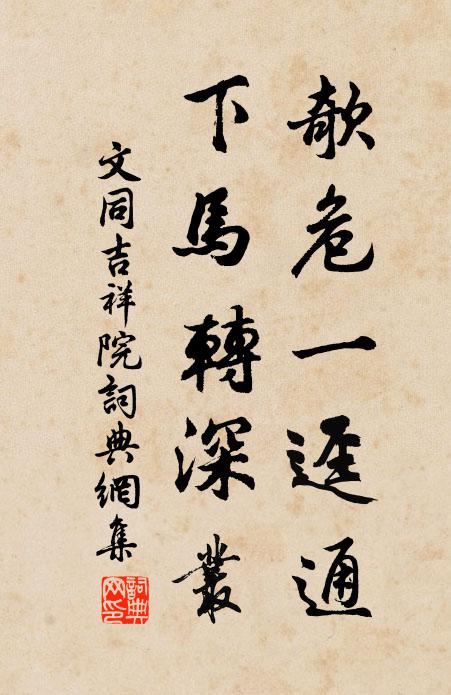 欹危一逕通
下馬轉深叢
文同吉祥院詞典網集
詞典